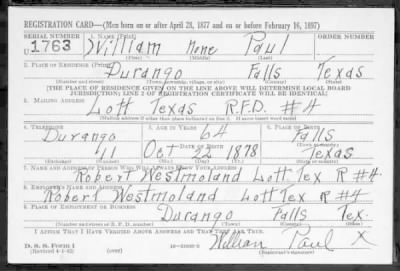 REGISTRATION CARD—(Men born on or after April 28, 1877 and on or before February 16, 1897)
SERIAL NUMBER 1. NAME (Print) ORDER NUMBER
U 1763 William None Paul
(First) (Middle) (Last)
2. PLACE OF RESIDENCE (Print)
Durango Falls Texas
(Number and street) (Town, township, village, or city) (County) (State)
[THE PLACE OF RESIDENCE GIVEN ON THE LINE ABOVE WILL DETERMINE LOCAL BOARD
JURISDICTION; LINE 2 OF REGISTRATION CERTIFICATE WILL BE IDENTICAL]
3. MAILING ADDRESS
Lott Texas R.F.D. #4
[Mailing address if other than place indicated on line 2. If same insert word same]
4. TELEPHONE 5. AGE IN YEARS 6. PLACE OF BIRTH
Durango 64 Falls
DATE OF BIRTH
41 Oct 22 1878 Texas
(Exchange) (Number) (Mo.) (Day) (Yr.) (State or country)
7. NAME AND ADDRESS OF PERSON WHO WILL ALWAYS KNOW YOUR ADDRESS
Robert Westmoland Lott Tex R #4.
8. EMPLOYER'S NAME AND ADDRESS
Robert Westmoland Lott Tex R #4.
9. PLACE OF EMPLOYMENT OR BUSINESS
Durango Falls Tex.
(Number and street or R. F. D. number) (Town) (County) (State)
I AFFIRM THAT I HAVE VERIFIED ABOVE ANSWERS AND THAT THEY ARE TRUE.
D. S. S. Form 1
(Revised 4-1-42) William Paul X
(Registrant's signature)